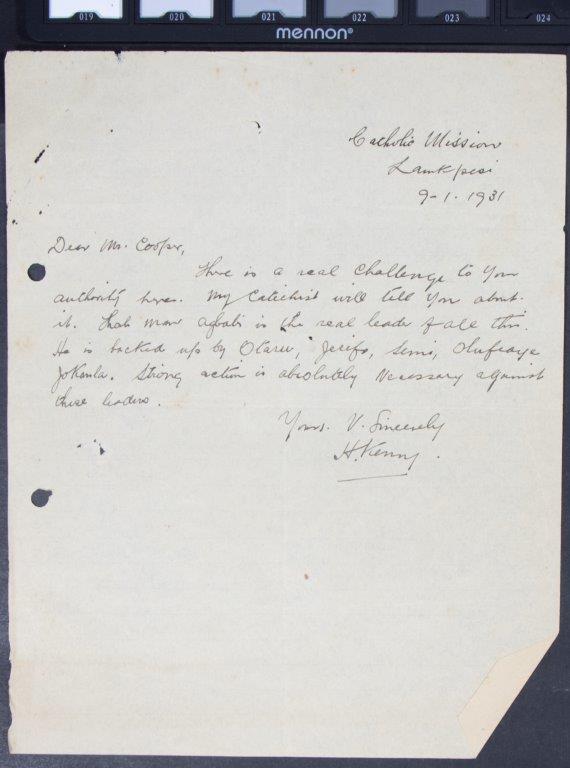 019 020 021 022 023 024
mennon®
Catholic Mission
9-1.1931
Dear Mr. Cooper,
There is a real challenge to your
authority here. My Catechist will tell you about
it. That man is the real leader of all this.
He is backed up by Otaru, Jerifo, Semi,
Strong action is absolutely necessary against
these leaders.
Yours. V. Sincerely
H. Kenny.